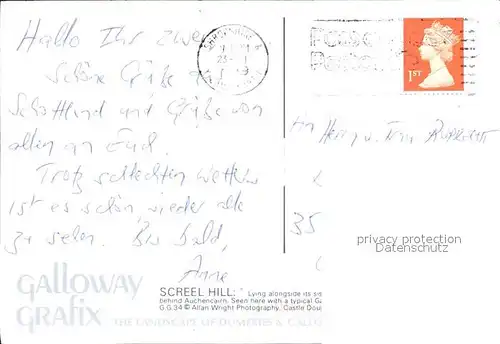 Hallo Ihr zwei
schöne Grüße aus
Schottland und Grüße von
allen an Euch.
Trotz schlechten Wetters
ist es schön, wieder alle
zu sehen. Bis bald,
Anne
1ST
An Herrn u. Frau
35
privacy protection
Datenschutz
GALLOWAY
GRAFIX
SCREEL HILL: Lying alongside its sis
behind Auchencairn. Seen here with a typical Ga
G.G.34 © Allan Wright Photography, Castle Dou
THE LANDSCAPE OF DUMFRIES & GALLO